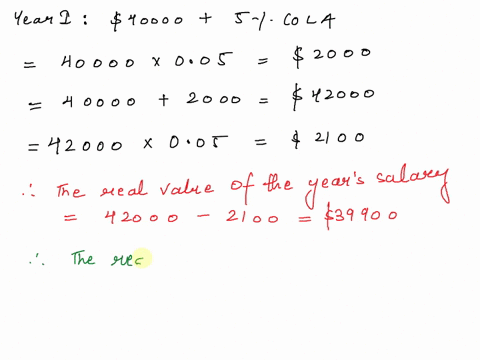 Year I : $40000 + 5% COLA
= 40000 × 0.05 = $2000
= 40000 + 2000 = $42000
= 42000 × 0.05 = $2100
∴ The real value of the year's salary
= 42000 - 2100 = $39900
∴ The rec